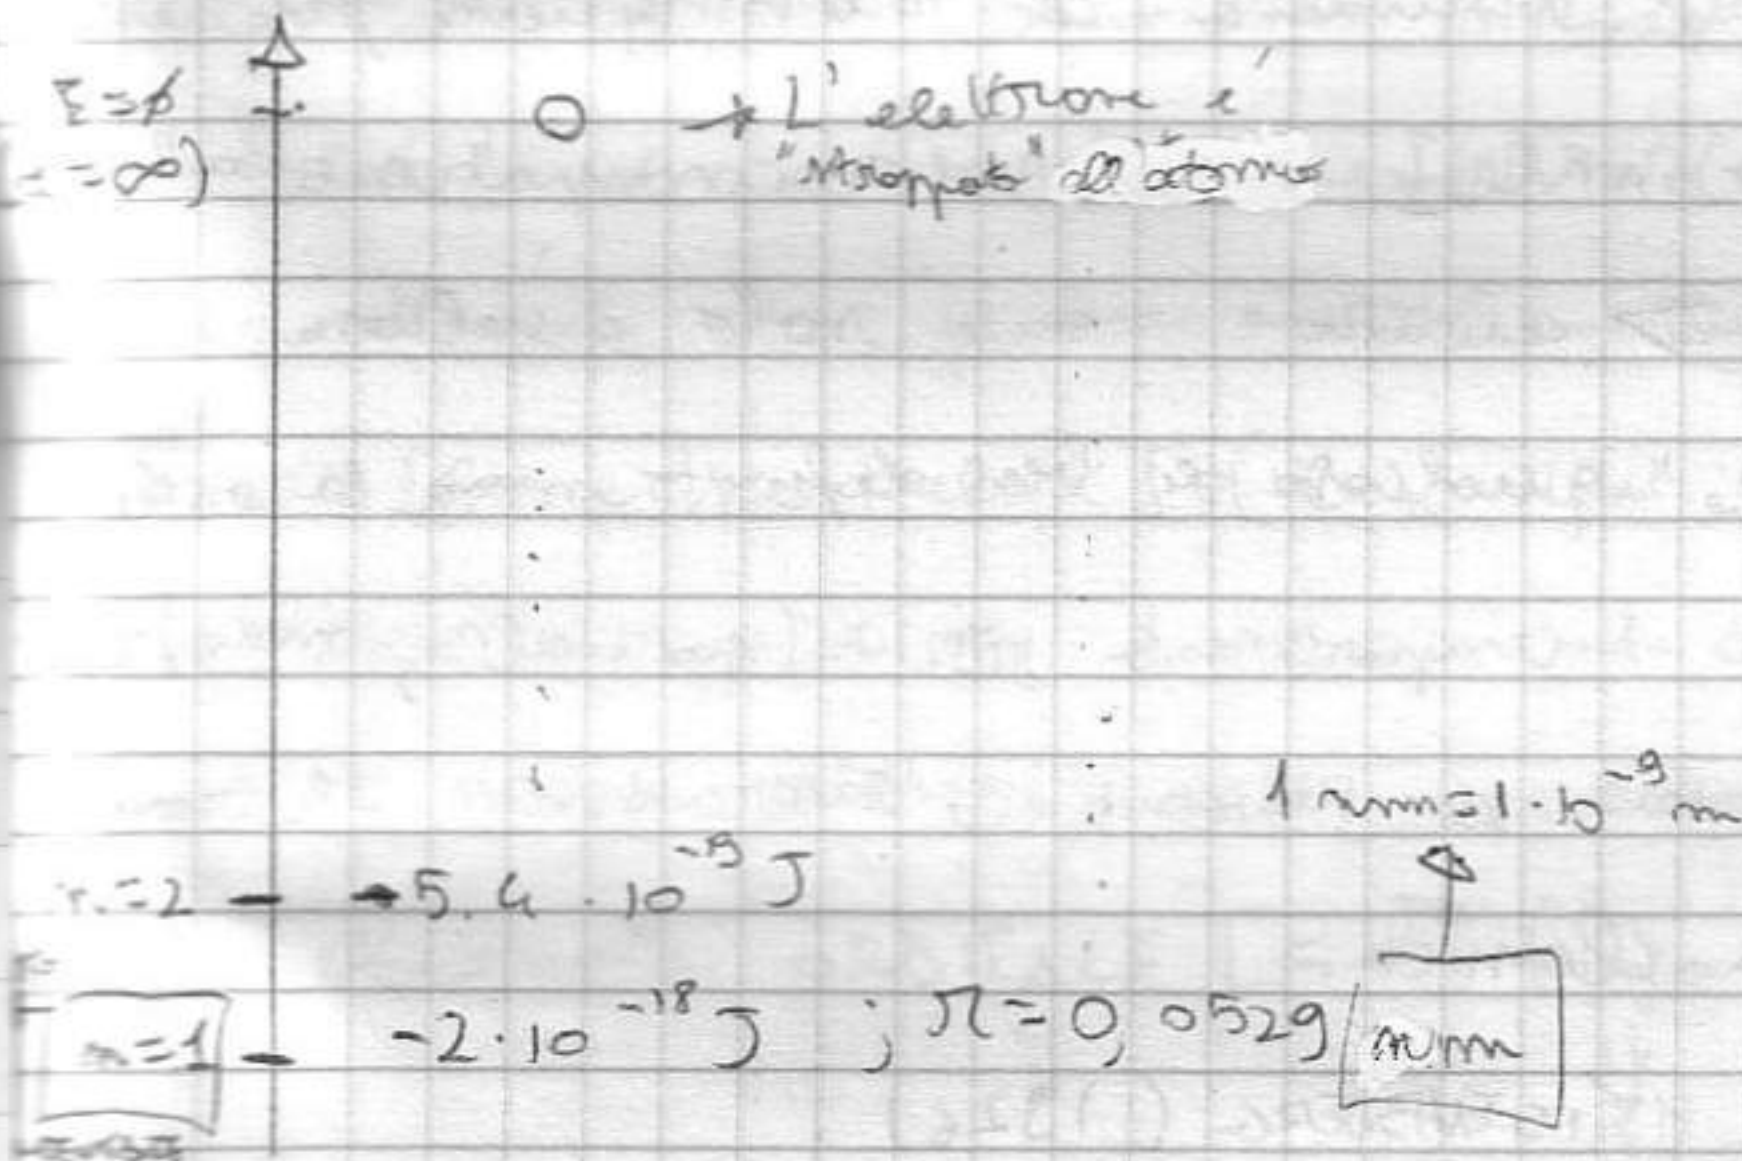 E=∅
(n=∞)
O → L'elettrone è
"strappato" all'atomo
1 nm=1·10⁻⁹ m
n=2 - -5.4·10⁻¹⁹ J
n=1 - -2·10⁻¹⁸ J ; r=0,0529 nm